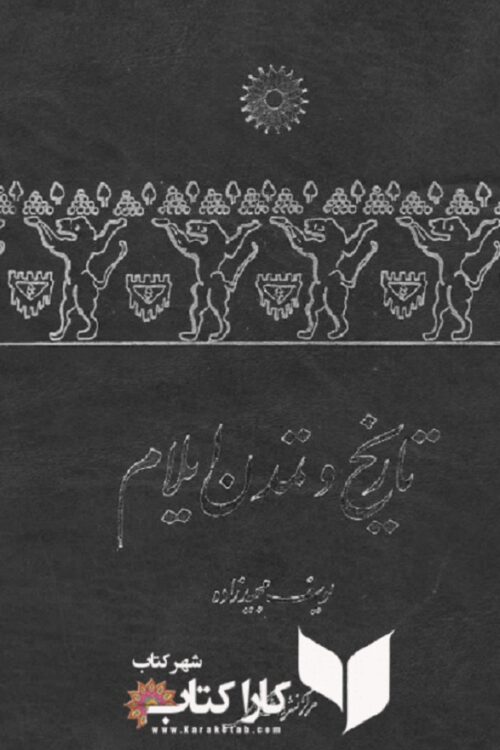 تاریخ و تمدن ایلام
یوسف مجیدزاده
مرکز نشر
شهر کتاب
کارا کتاب
www.karaketab.com